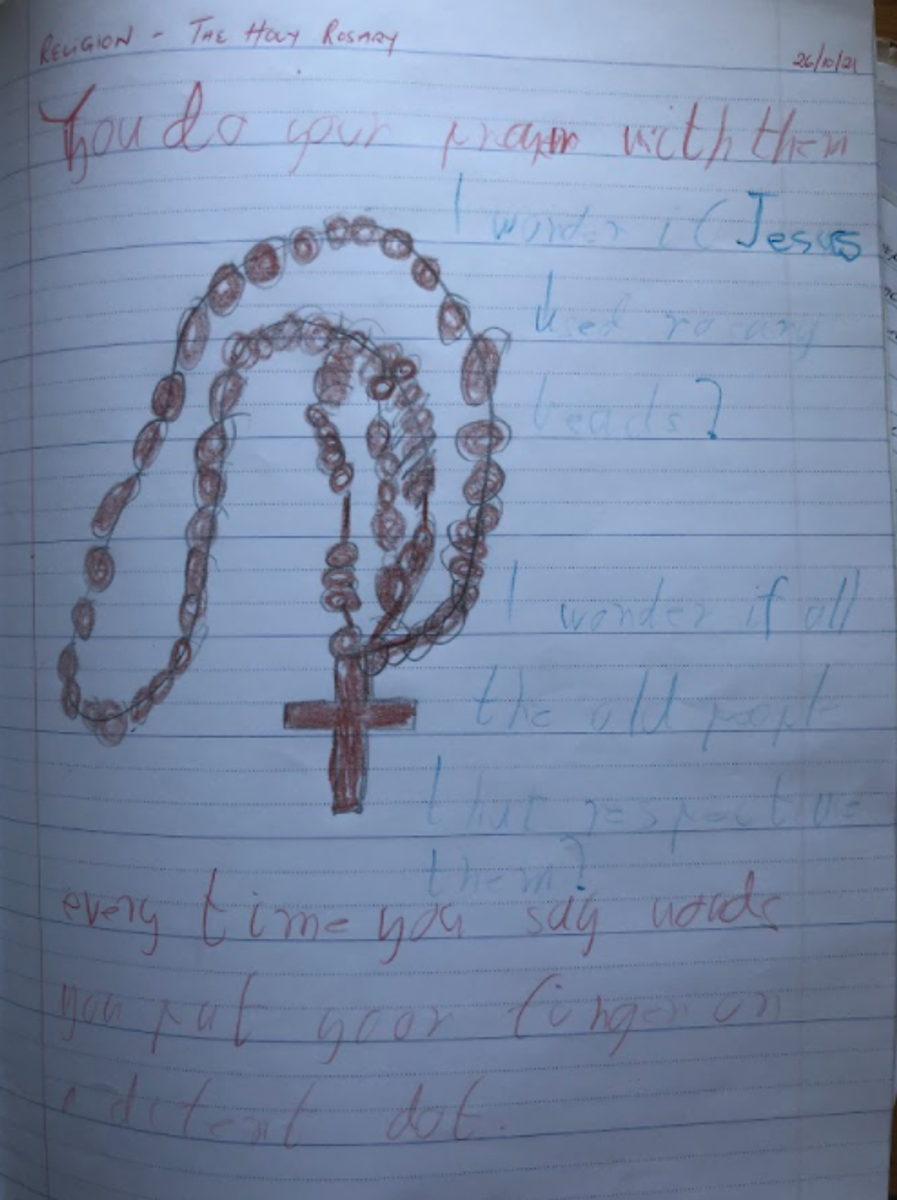 RELIGION - THE HOLY ROSARY
26/10/21
You do your with them
I wonder if Jesus
used rosary
beads?
I wonder if all
the old people
that respect use
them?
every time you say words
you put your finger on
a ditent dot.